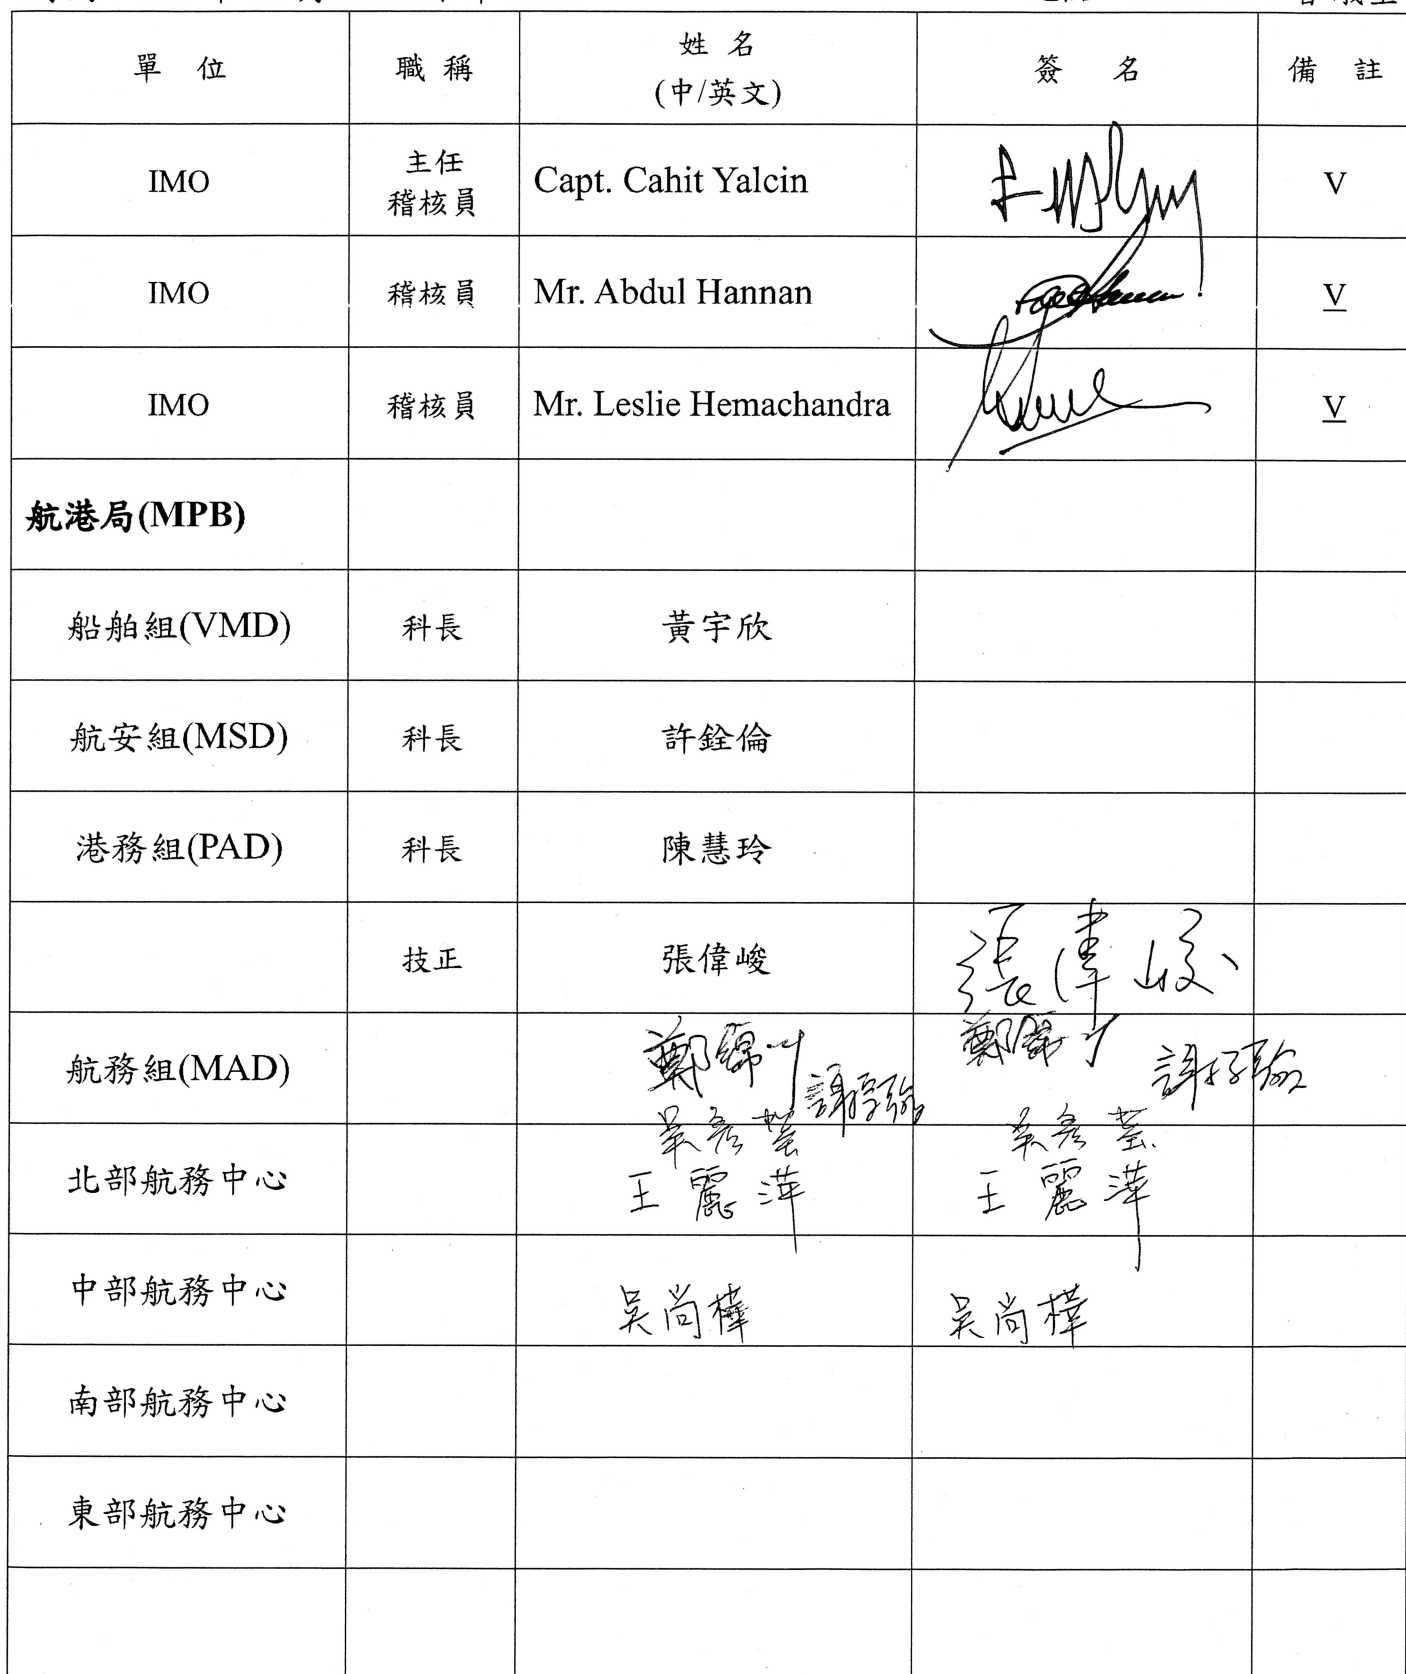 單 位 職 稱 姓 名 簽 名 備 註
(中/英文)
IMO 主任 Capt. Cahit Yalcin V
稽核員
IMO 稽核員 Mr. Abdul Hannan V
IMO 稽核員 Mr. Leslie Hemachandra V
航港局(MPB)
船舶組(VMD) 科長 黃宇欣
航安組(MSD) 科長 許銓倫
港務組(PAD) 科長 陳慧玲
技正 張偉峻 張偉峻
航務組(MAD)
吳彥
北部航務中心 王麗萍 王麗萍
中部航務中心 吳尚樺 吳尚樺
南部航務中心
東部航務中心